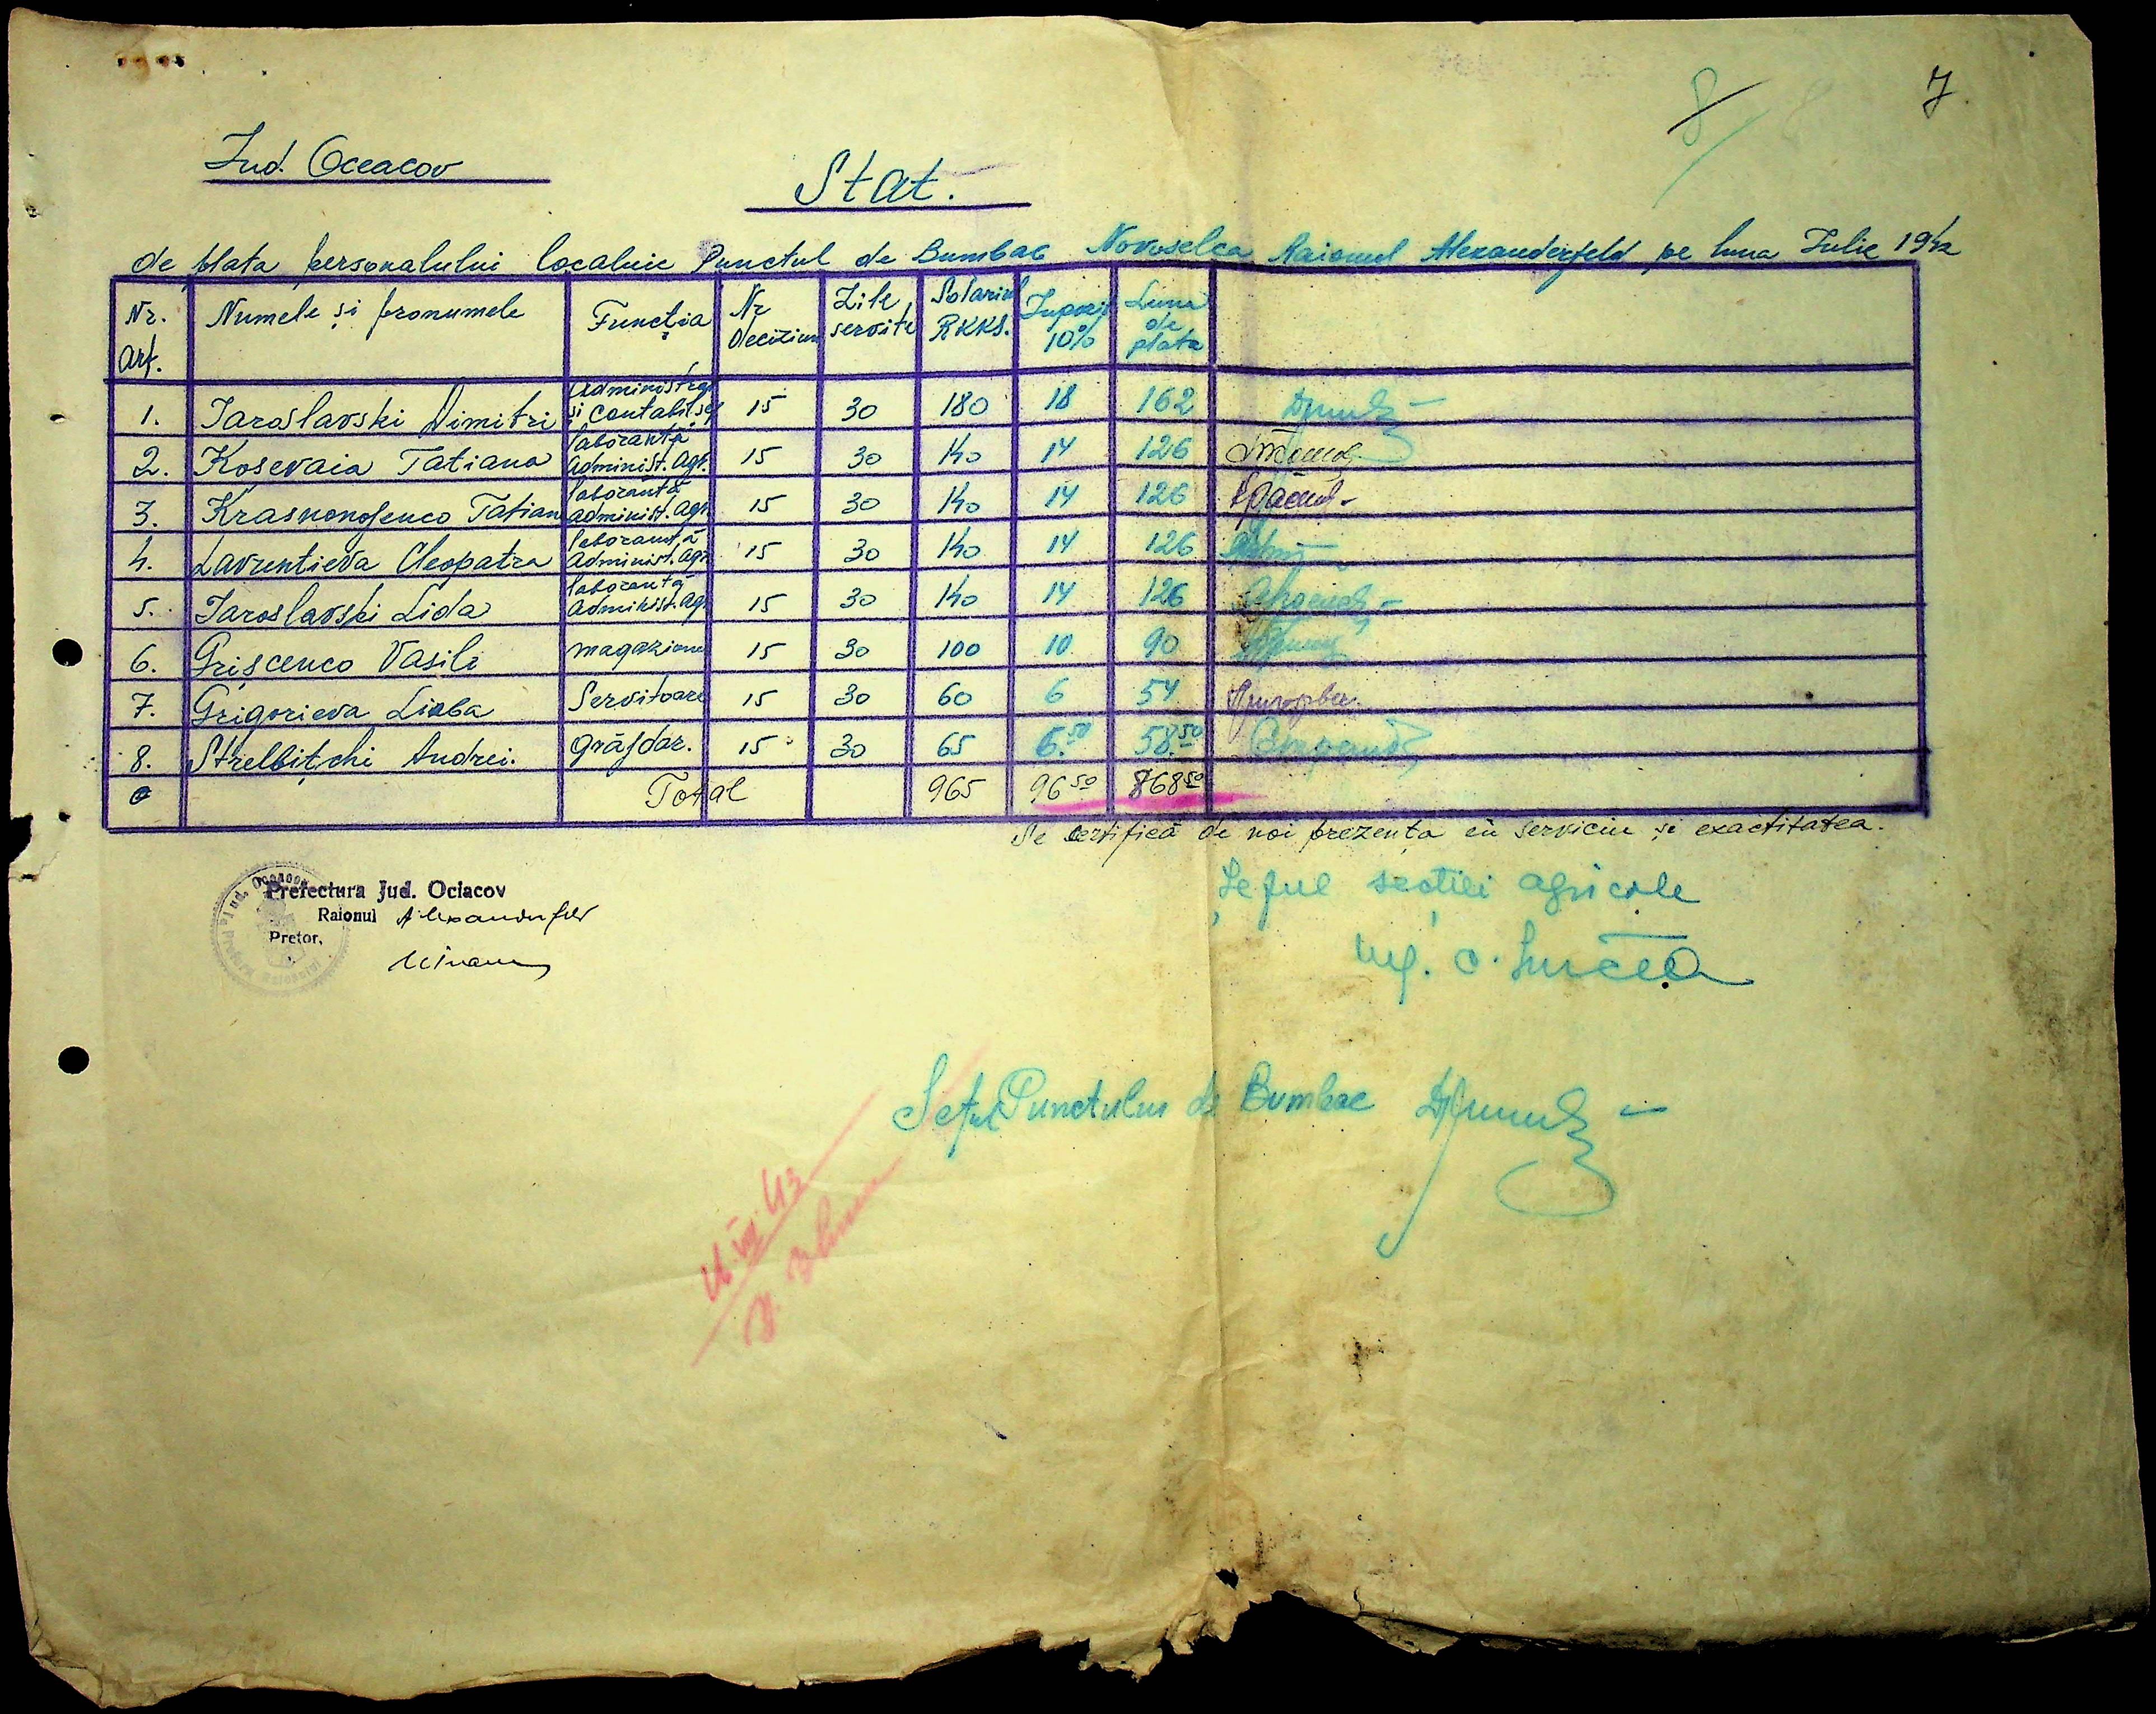 7
8
Jud. Oceacov
Stat.
de plata personalului localnic Punctul de Bumbac Novoselca Raionul Alexanderfeld pe luna Iulie 1942
Nr. art. Numele și pronumele Funcția Nr deciziun Zile servite Solariul RKKS. Impozit 10% Suma de plata
1. Iaroslavski Dimitri Administrator și contabil șef 15 30 180 18 162
2. Koșevaia Tatiana laborantă administ. agr. 15 30 140 14 126
3. Krasnonosenco Tatian laborantă administ. agr 15 30 140 14 126
4. Lavrentieva Cleopatra laborantă administ. agr 15 30 140 14 126
5. Iaroslavski Lida laborantă administ. agr 15 30 140 14 126
6. Grișcenco Vasili magazioner 15 30 100 10 90
7. Grigorieva Liuba Servitoare 15 30 60 6 54
8. Strelbițchi Andrei. grăjdar. 15 30 65 6.50 58.50
Total 965 96 50 868 50
Se certifică de noi prezența în serviciu și exactitatea.
Prefectura Jud. Ociacov
Raionul Alexanderfeld
Pretor,
Șeful secției agricole
Ing. C.
Seful Punctului de Bumbac